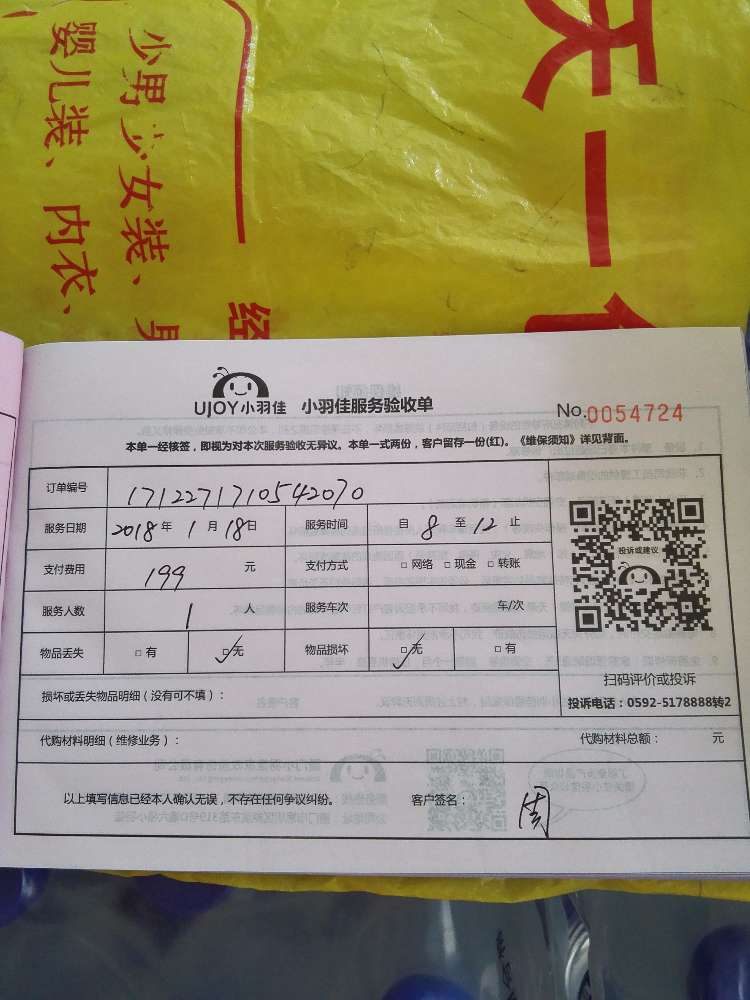 少男少女装、男
婴儿装、内衣、
经
天一
UJOY小羽佳 小羽佳服务验收单 No.0054724
本单一经核签，即视为对本次服务验收无异议。本单一式两份，客户留存一份(红)。《维保须知》详见背面。
订单编号 171227171054 2070
服务日期 2018年1月18日 服务时间 自8至12止
支付费用 199 元 支付方式 □网络 □现金 □转账
服务人数 1 人 服务车次 车/次
物品丢失 □有 ☑无 物品损坏 ☑无 □有
投诉或建议
扫码评价或投诉
投诉电话：0592-5178888转2
损坏或丢失物品明细（没有可不填）：
代购材料明细（维修业务）： 代购材料总额： 元
以上填写信息已经本人确认无误，不存在任何争议纠纷。 客户签名： 周